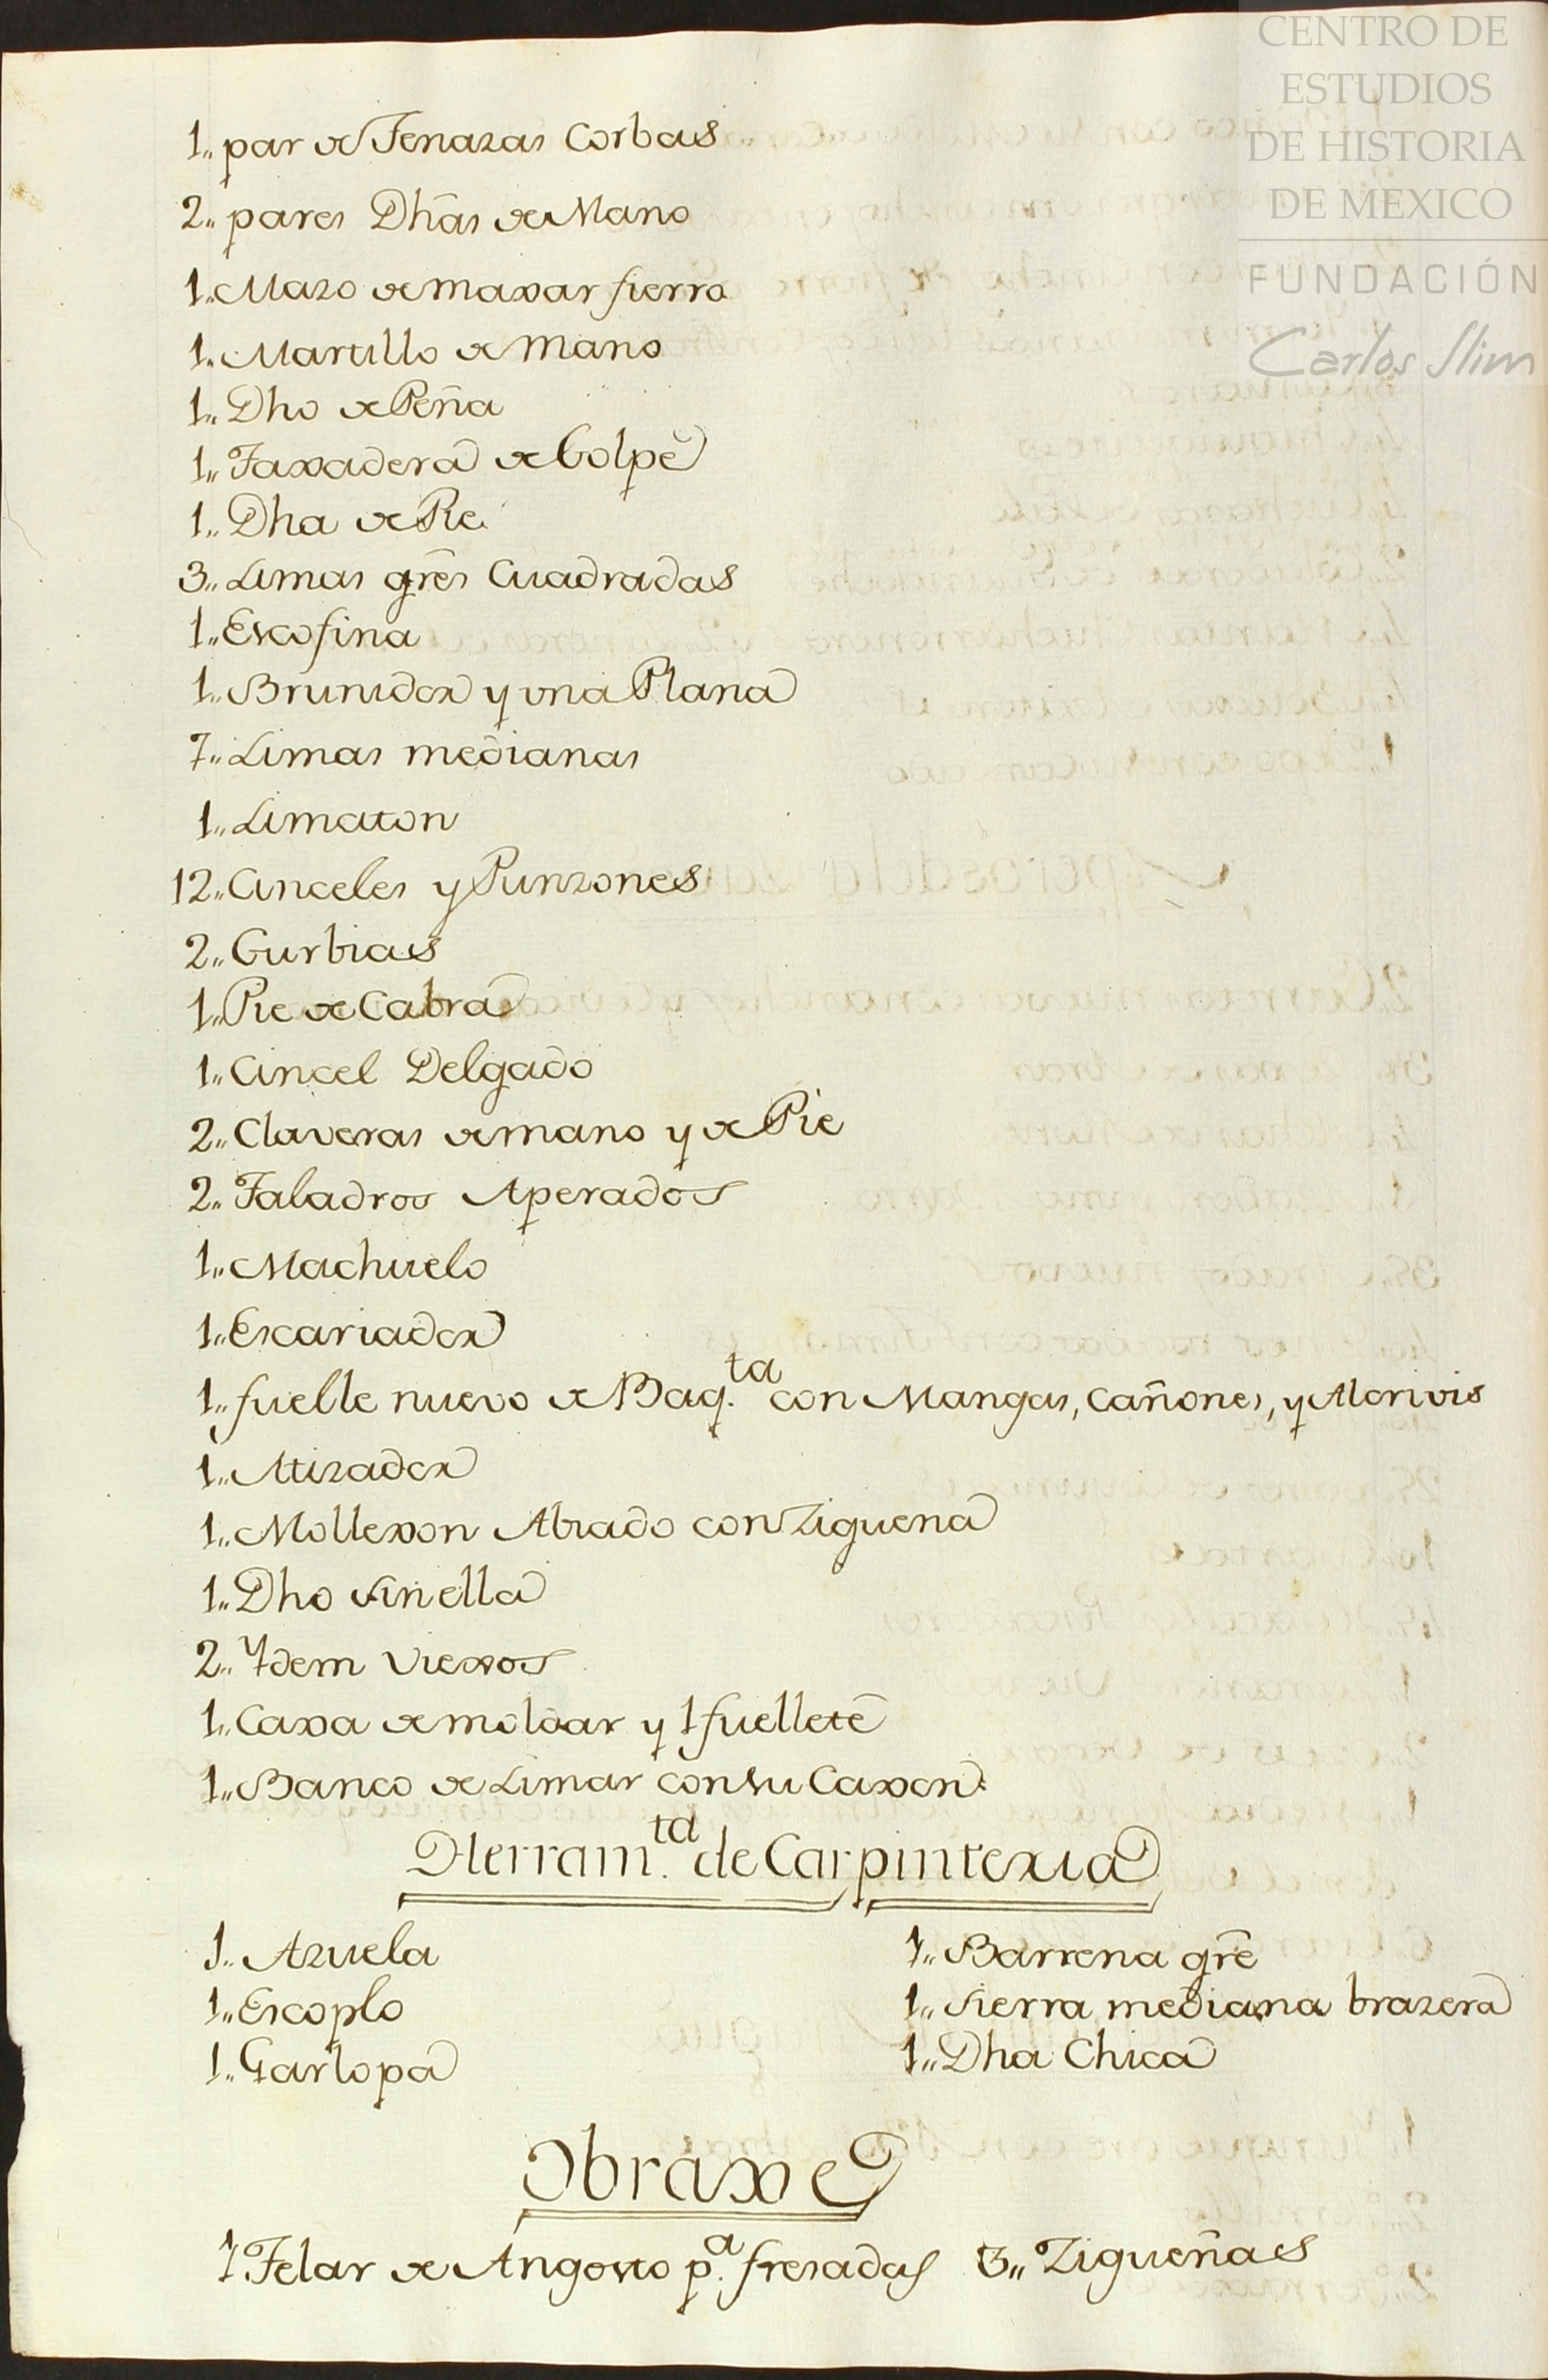 CENTRO DE
ESTUDIOS
DE HISTORIA
DE MEXICO
FUNDACIÓN
Carlos Slim
1,, par de Tenazas Corbas
2,, pares Dhãs de Mano
1,, Mazo de maxar fierro
1,, Martillo de mano
1,, Dho de Peña
1,, Taxadera de Golpe
1,, Dha de Pie
3,, Limas grẽs Cuadradas
1,, Escofina
1,, Brunidor y vna Plana
7,, Limas medianas
1,, Limaton
12,, Cinceles y Punzones
2,, Gurbias
1,, Pie de Cabra
1,, Cincel Delgado
2,, Claveras de mano y de Pie
2,, Taladros Aperados
1,, Machuelo
1,, Escariador
1,, fuelle nuevo de Baq.ta con Mangas, Cañones, y Alcrivis
1,, Atizador
1,, Mollexon Abiado con Ziguena
1,, Dho sin ella
2,, Ydem Viexos
1,, Caxa de moldar y 1 fuellete
1,, Banco de Limar con su Caxon
Herram.ta de Carpinteria
1,, Azuela
1,, Escoplo
1,, Garlopa
1,, Barrena grẽ
1,, Sierra mediana brazera
1,, Dha Chica
Obraxe
1 Telar de Angosto p.a fresadas 3,, Zigueñas